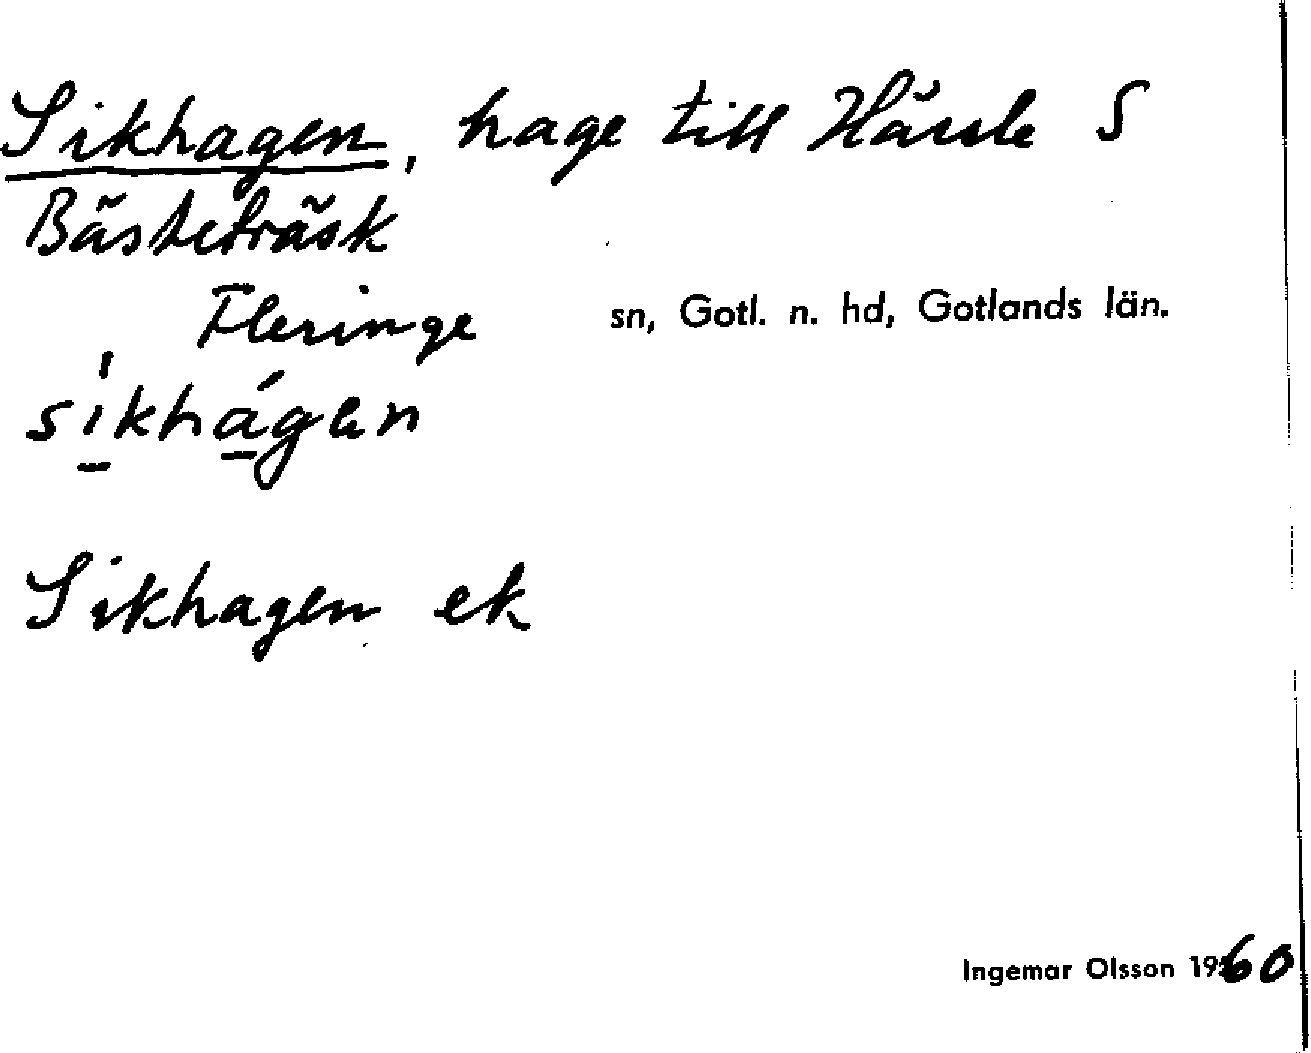 Sikhagen, hage till Hässle S
Bästeträsk
Fleringe sn, Gotl. n. hd, Gotlands län.
sikhágen
Sikhagen ek
Ingemar Olsson 1960